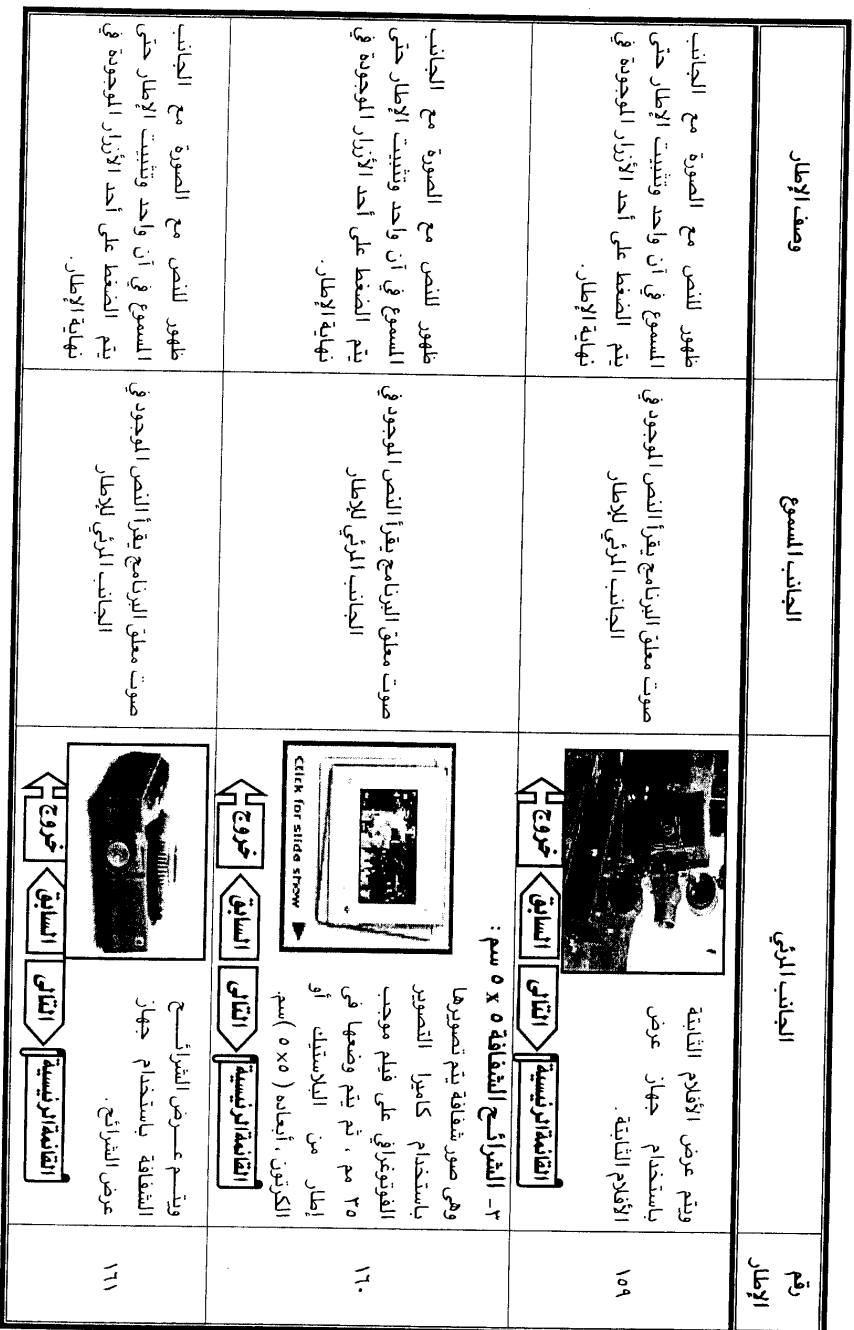 رقم
الإطار
الجانب المرئي
الجانب المسموع
وصف الإطار
١٥٩
ويتم عرض الأفلام الثابتة
باستخدام جهاز عرض
الأفلام الثابتة.
القائمة الرئيسية
التالى
السابق
خروج
صوت معلق البرنامج يقرأ النص الموجود في
الجانب المرئي للإطار
ظهور للنص مع الصورة مع الجانب
المسموع في آن واحد وتثبيت الإطار حتى
يتم الضغط على أحد الأزرار الموجودة في
نهاية الإطار.
١٦٠
٣- الشرائح الشفافة ٥ x ٥ سم :
وهى صور شفافة يتم تصويرها
باستخدام كاميرا التصوير
الفوتوغرافي على فيلم موجب
٣٥ مم ، ثم يتم وضعها فى
إطار من البلاستيك أو
الكرتون ، أبعاده ( ٥ x ٥ )سم.
Click for slide show
القائمة الرئيسية
التالى
السابق
خروج
صوت معلق البرنامج يقرأ النص الموجود في
الجانب المرئي للإطار
ظهور للنص مع الصورة مع الجانب
المسموع في آن واحد وتثبيت الإطار حتى
يتم الضغط على أحد الأزرار الموجودة في
نهاية الإطار.
١٦١
ويتـــم عـــرض الشرائـــح
الشفافة باستخدام جهاز
عرض الشرائح.
القائمة الرئيسية
التالى
السابق
خروج
صوت معلق البرنامج يقرأ النص الموجود في
الجانب المرئي للإطار
ظهور للنص مع الصورة مع الجانب
المسموع في آن واحد وتثبيت الإطار حتى
يتم الضغط على أحد الأزرار الموجودة في
نهاية الإطار.